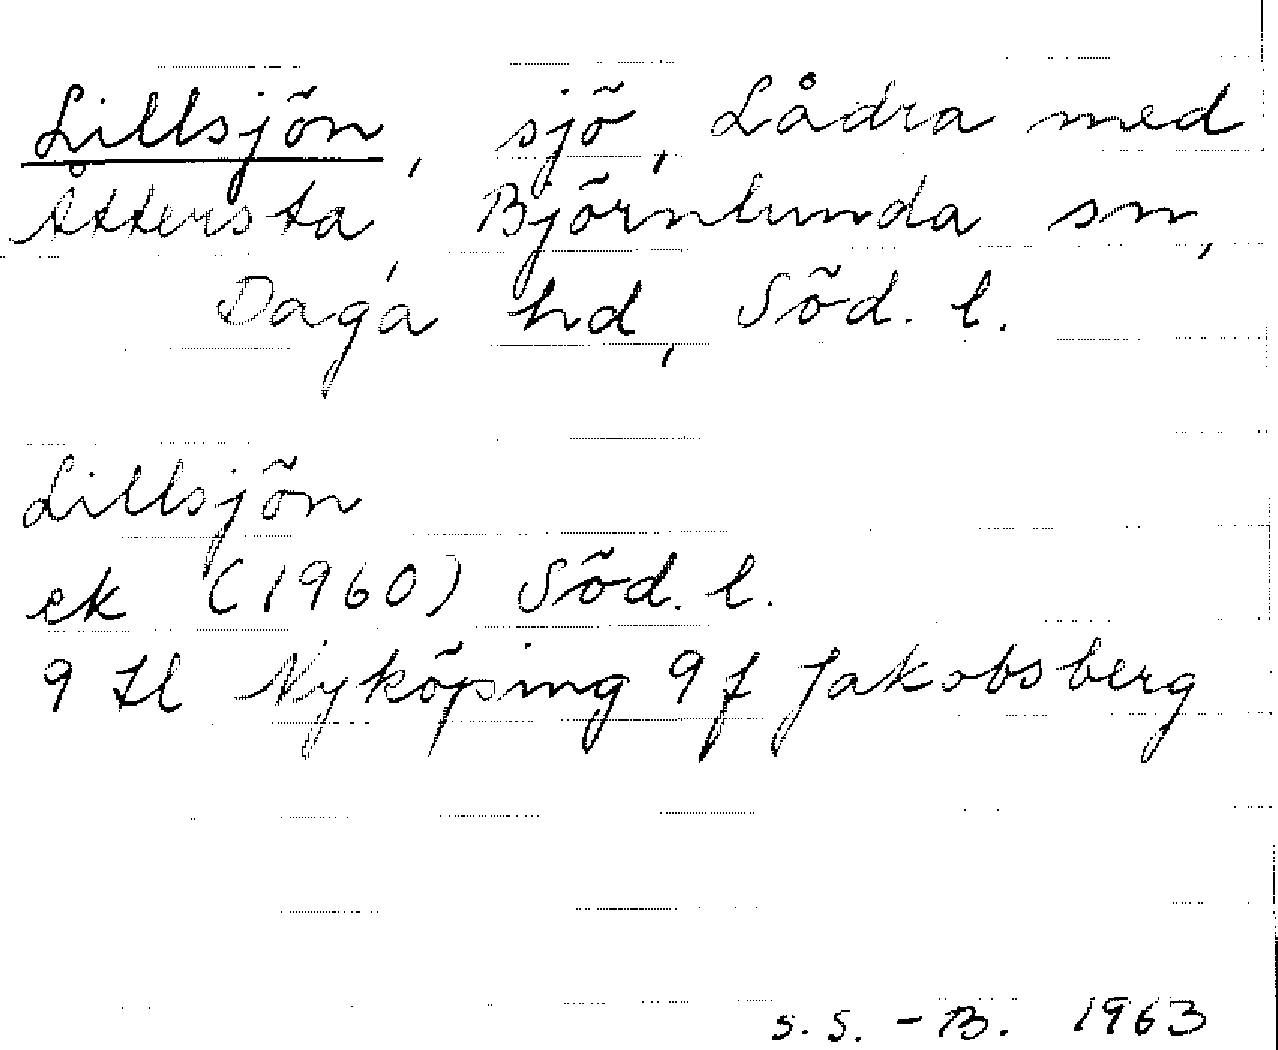 Lillsjön, sjö, Lådra med
Åttersta, Björnlunda sn,
Daga hd, Söd. l.
Lillsjön
ek (1960) Söd. l.
9 H Nyköping 9 f Jakobsberg
S.S. - B. 1963